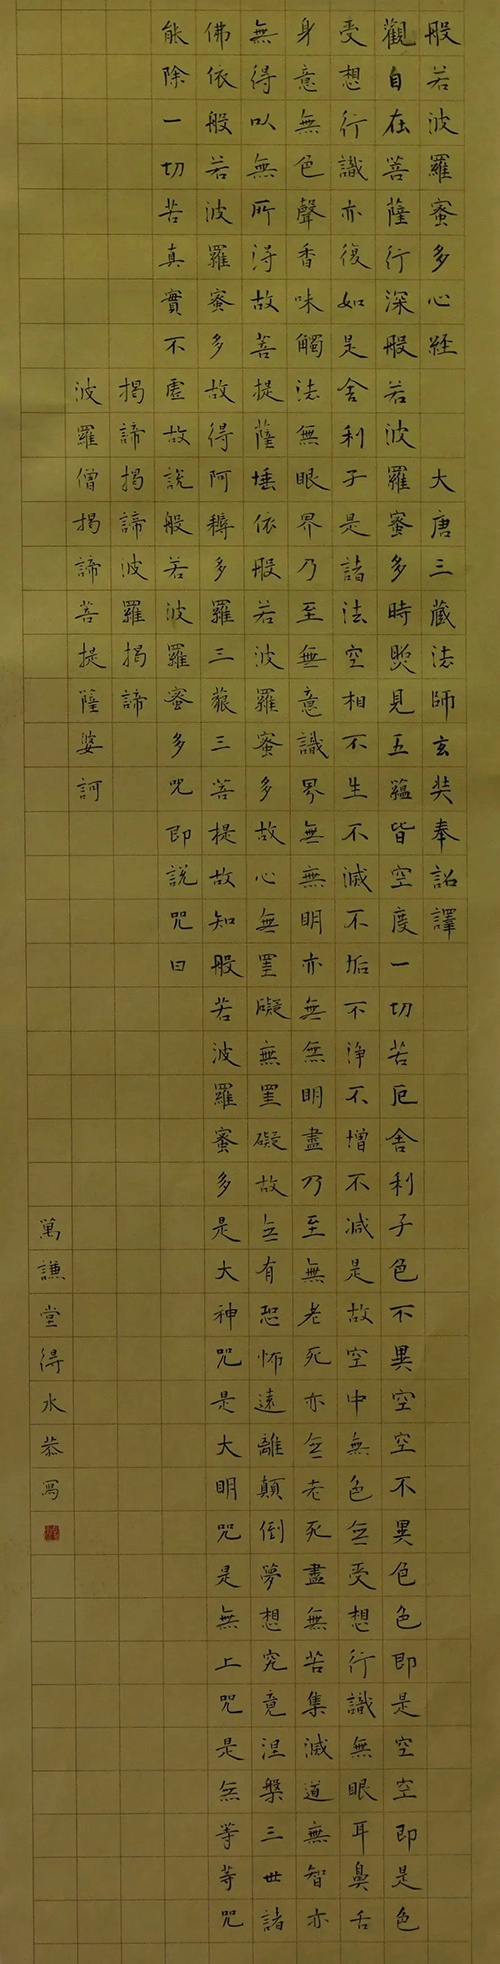 般若波羅蜜多心経 大唐三藏法師玄奘奉詔譯
觀自在菩薩行深般若波羅蜜多時照見五蘊皆空度一切苦厄舍利子色不異空空不異色色即是空空即是色
受想行識亦復如是舍利子是諸法空相不生不滅不垢不淨不增不減是故空中無色無受想行識無眼耳鼻舌
身意無色聲香味觸法無眼界乃至無意識界無無明亦無無明盡乃至無老死亦無老死盡無苦集滅道無智亦
無得以無所得故菩提薩埵依般若波羅蜜多故心無罣礙無罣礙故無有恐怖遠離顛倒夢想究竟涅槃三世諸
佛依般若波羅蜜多故得阿耨多羅三藐三菩提故知般若波羅蜜多是大神咒是大明咒是無上咒是無等等咒
能除一切苦真實不虛故說般若波羅蜜多咒即說咒曰
揭諦揭諦波羅揭諦
波羅僧揭諦菩提薩婆訶
萬謙堂得水恭寫